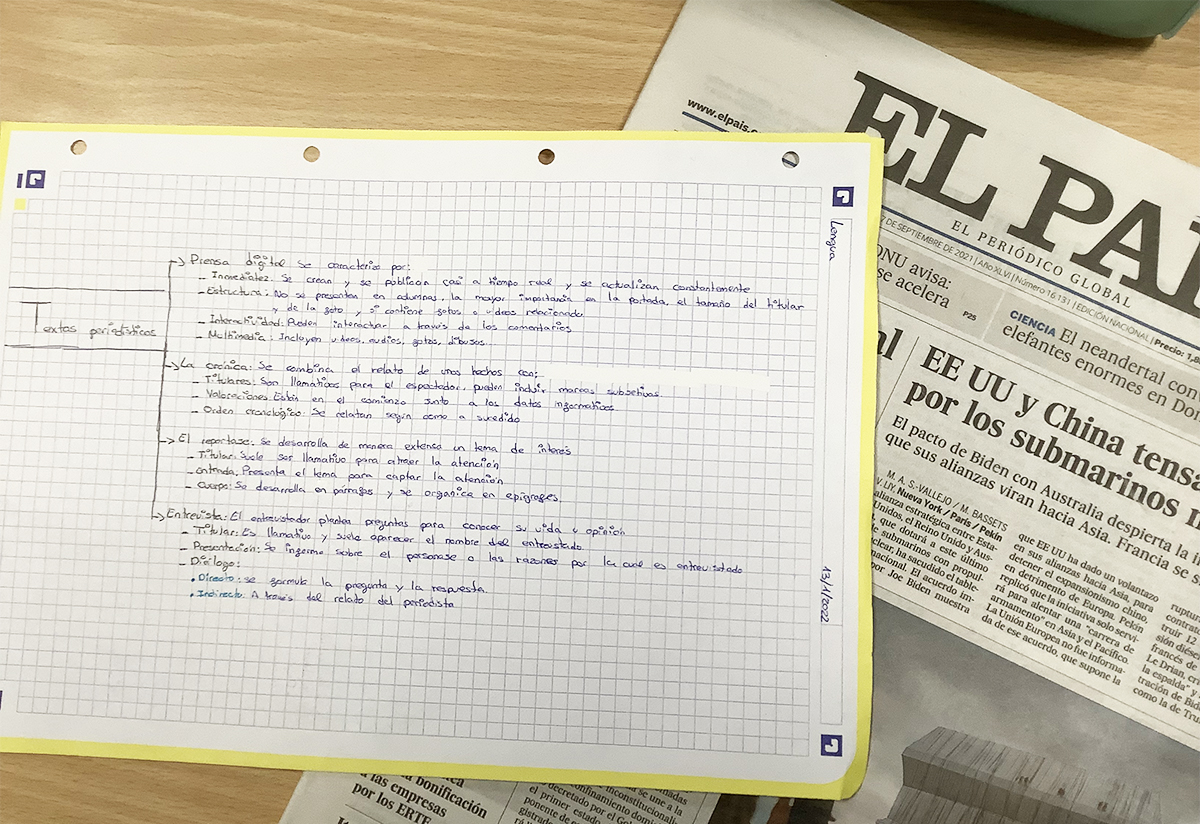 Lengua
13/1/2022
Textas periodísticos
-> Prensa digital se caracteriza por:
- Inmediatez: Se crean y se publican casi a tiempo real y se actualizan constantemente
- Estructura: No se presentan en columnas, la mayor importancia en la portada, el tamaño del titular
y de la foto y si contiene fotos o videos relacionado
- Interactividad: Pueden interactuar a través de los comentarios
- Multimedia: Incluyen videos, audios, fotos, dibujos...
-> La crónica: Se combina el relato de unos hechos con:
- Titulares: Son llamativos para el espectador, pueden incluir marcas subjetivas.
- Valoraciones: Están en el comienzo junto a los datos informaticos
- Orden cronológico: Se relatan según como a sucedido
-> El reportaje: Se desarrolla de manera extensa un tema de interés
- Titular: Suele ser llamativo para atraer la atención
- entrada: Presenta el tema para captar la atención
- Cuerpo: Se desarrolla en párrafos y se organica en epígrafes.
-> Entrevista: El entrevistador plantea preguntas para conocer su vida u opinión
- Titular: Es llamativo y suele aparecer el nombre del entrevistado
- Presentación: Se informa sobre el personaje o las razones por la cual es entrevistado
- Diálogo:
• Directo: se formula la pregunta y la respuesta.
• Indirecto: A través del relato del periodista
www.elpais.c
EL PAÍ
EL PERIÓDICO GLOBAL
DE SEPTIEMBRE DE 2021 | Año XLVI | Número 16.131 | EDICIÓN NACIONAL | Precio: 1,8
ONU avisa:
se acelera
P25
CIENCIA El neandertal con
elefantes enormes en Do
al
EE UU y China tensa
por los submarinos n
El pacto de Biden con Australia despierta la
que sus alianzas viran hacia Asia. Francia se s
M. A. S.-VALLEJO / M. BASSETS
V. LIY, Nueva York / París / Pekín
alianza estratégica entre Esta-
Unidos, el Reino Unido y Aus-
que dotará a este último
de submarinos con propul-
clear, ha sacudido el table-
nacional. El acuerdo im-
por Joe Biden muestra
que EE UU ha dado un volantazo
en sus alianzas hacia Asia, para
detener el expansionismo chino,
en detrimento de Europa. Pekín
replicó que la iniciativa solo servi-
rá para alentar una "carrera de
armamento" en Asia y el Pacífico.
La Unión Europea no fue informa-
da de ese acuerdo, que supone la
ruptur
contrat
truir 12
sión diés
francés de
Le Drian, cri
la espalda" y
tración de Bid
como la de Tru
bonificación
a las empresas
por los ERTE
se une a la
inconstitucionali-
onfinamiento domi
decretado por el Go
el primer estado
ponente de
gistrado